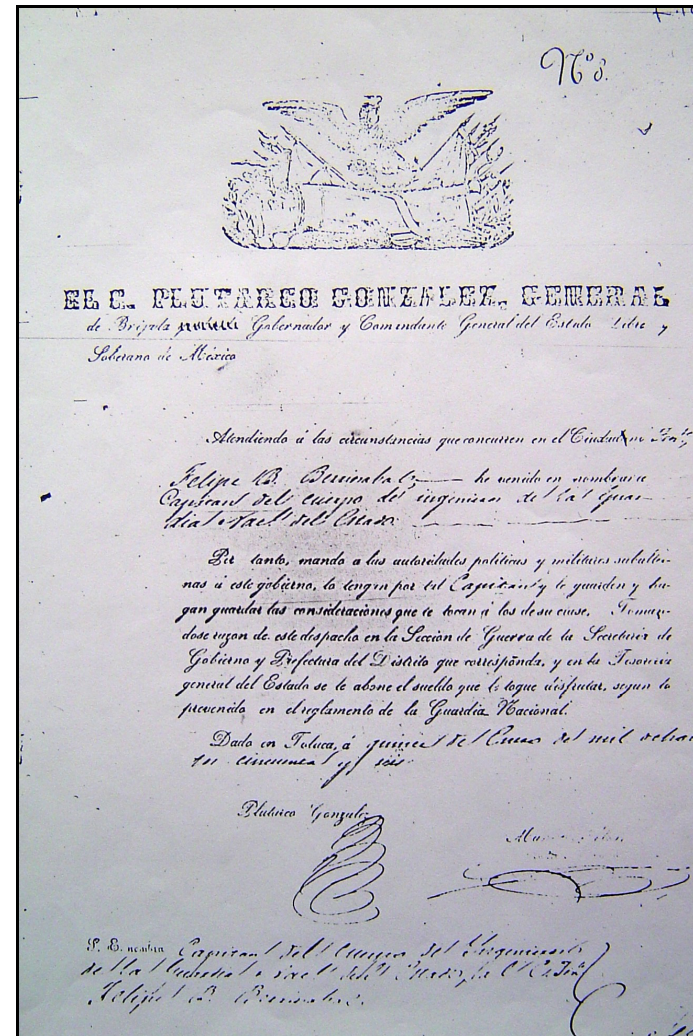 Nº 8.
EL C. PLUTARCO GONZALEZ, GENERAL
de Brigada Gobernador y Comandante General del Estado Libre y
Soberano de México
Atendiendo á las circunstancias que concurren en el Ciudadano
Felipe B. he venido en nombrarle
Capitan del cuerpo de ingenieros de la Guar-
dia Nacl del Estado
Por tanto, mando a las autoridades politicas y militares subalter-
nas á este gobierno, lo tengan por tal Capitan y le guarden y ha-
gan guardar las consideraciones que le tocan á los de su clase. Toman-
dose razon de este despacho en la Sección de Guerra de la Secretaria de
Gobierno y Prefectura del Distrito que corresponda, y en la Tesoreria
general del Estado se le abone el sueldo que le toque disfrutar, segun lo
prevenido en el reglamento de la Guardia Nacional.
Dado en Toluca, á quince de Enero de mil ochocien
tos cincuenta y seis
Plutarco Gonzalez
S. E. nombra Capitan del Cuerpo de Ingenieros
de la Guardia Nacl del Estado, al C.
Felipe B.